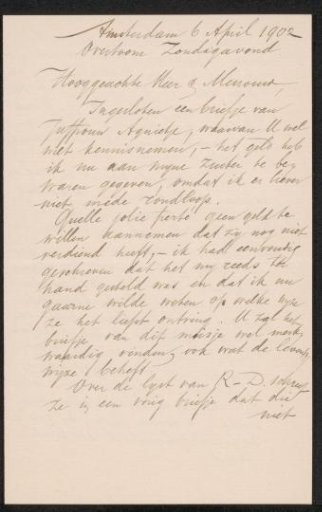 Amsterdam 6 April 1902
Overtoom Zondagavond
Hooggeachte Heer & Mevrouw,
Ingesloten een briefje van
Juffrouw Agnietje, waarvan U wel
wilt kennisnemen, – het geld heb
ik nu aan mijne zuster te be-
waren gegeven, omdat ik er liever
niet mede rondloop.
Quelle jolie fierté geen geld te
willen aannemen dat zij nog niet
verdiend heeft, – ik had eenvoudig
geschreven dat het mij reeds ter
hand gesteld was en dat ik nu
gaarne wilde weten op welke wijze
ze het liefst ontving. U zal het
briefje van dit meisje wel merk-
waardig vinden, ook wat de levens
wijze betreft.
Over de lijst van R – D. schreef
ze in een vorig briefje dat die
niet